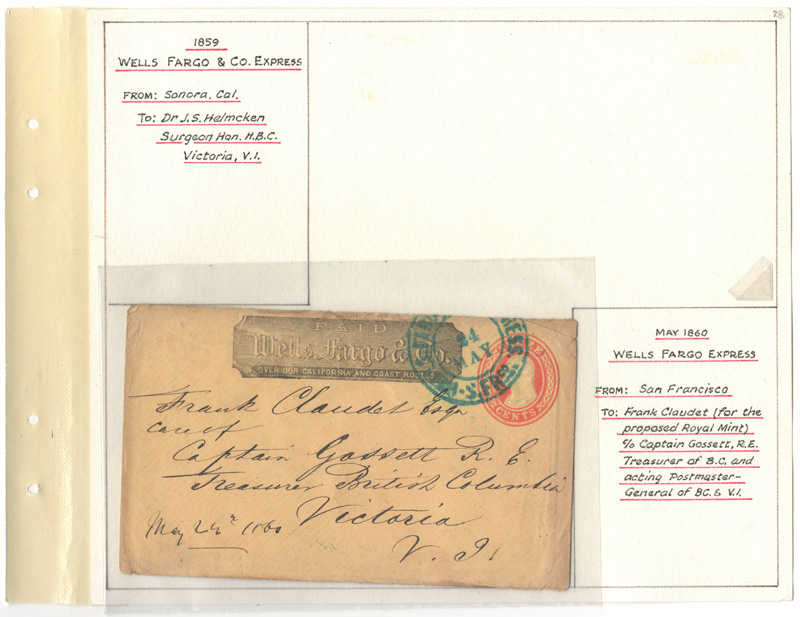 28
1859
WELLS FARGO & CO. EXPRESS
FROM: Sonora, Cal.
To: Dr J.S. Helmcken
Surgeon Hon. H.B.C.
Victoria, V.I.
PAID
Wells, Fargo & Co.
OVER OUR CALIFORNIA AND COAST ROUTES
24
MAY
S. FRO.
CENTS
Frank Claudet Esqr
care of
Captain Gossett R. E.
Treasurer British Columbia
Victoria
V. I.
May 24th 1860
MAY 1860
WELLS FARGO EXPRESS
FROM: San Francisco
TO: Frank Claudet (for the
proposed Royal Mint)
c/o Captain Gossett, R.E.
Treasurer of B.C. and
acting Postmaster-
General of BC. & V.I.